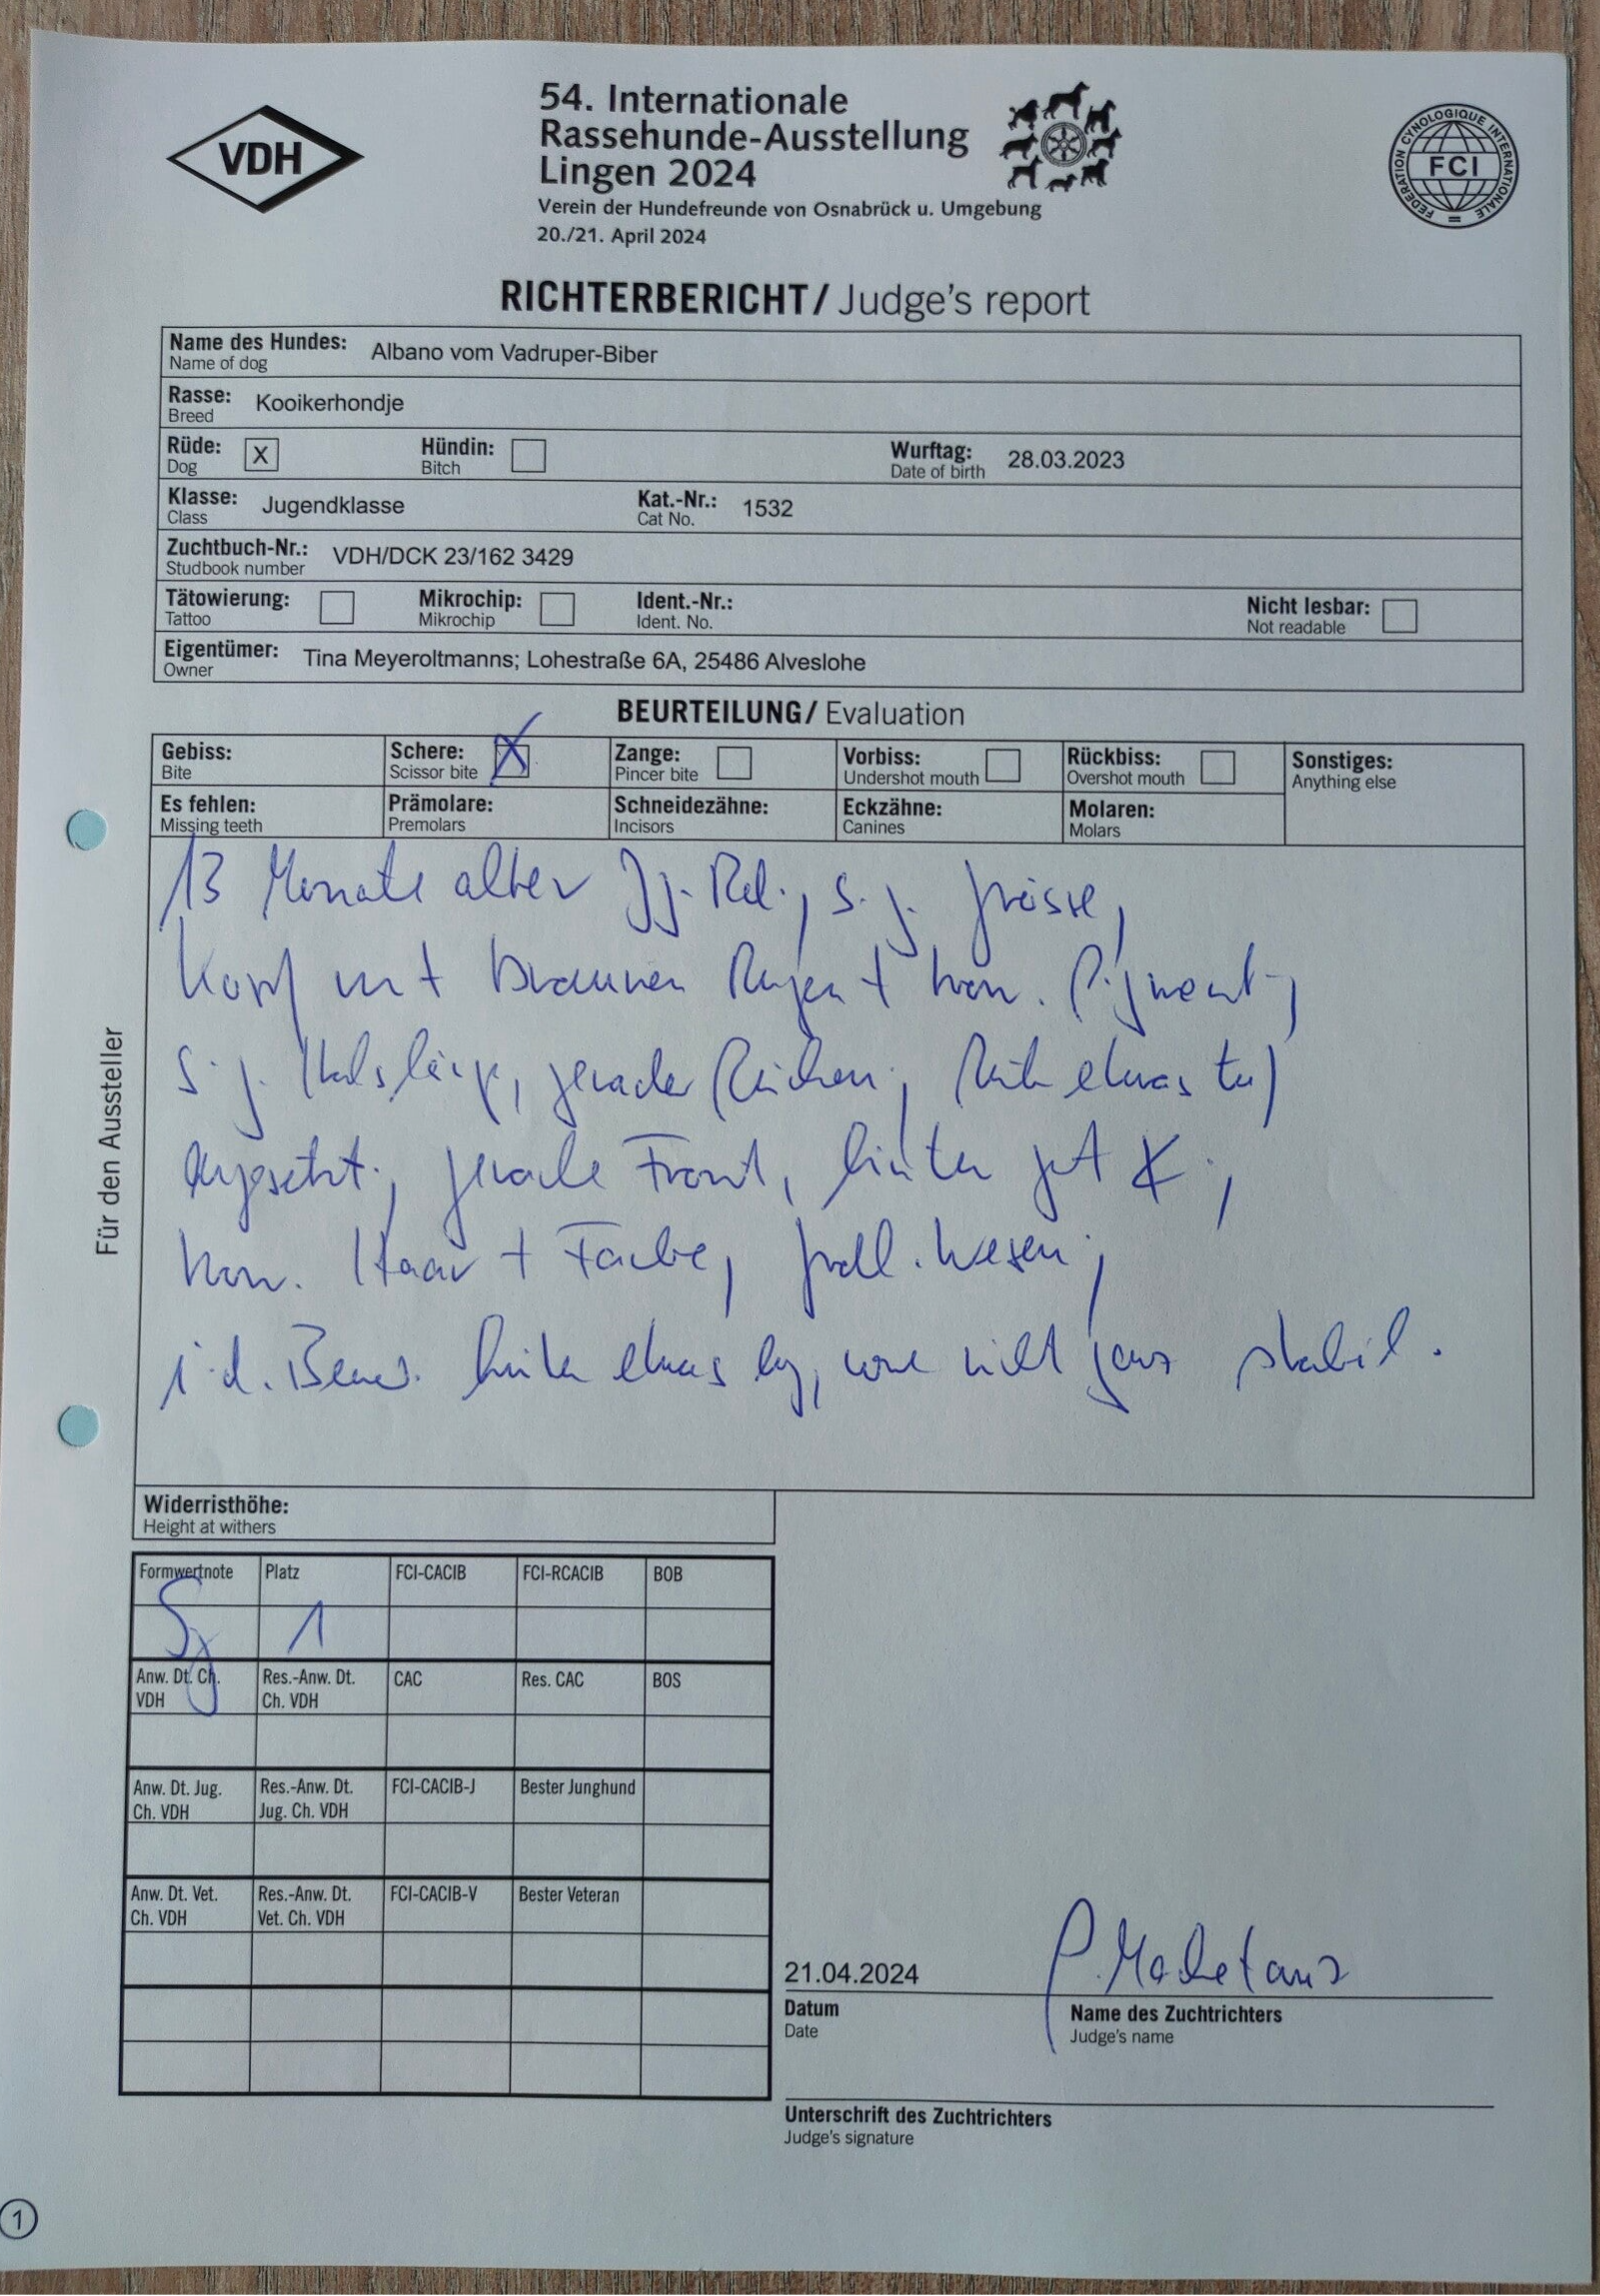 VDH
54. Internationale
Rassehunde-Ausstellung
Lingen 2024
Verein der Hundefreunde von Osnabrück u. Umgebung
20./21. April 2024
FEDERATION CYNOLOGIQUE INTERNATIONALE
FCI
RICHTERBERICHT/ Judge's report
Name des Hundes: Albano vom Vadruper-Biber
Name of dog
Rasse: Kooikerhondje
Breed
Rüde: X Hündin: Wurftag: 28.03.2023
Dog Bitch Date of birth
Klasse: Jugendklasse Kat.-Nr.: 1532
Class Cat No.
Zuchtbuch-Nr.: VDH/DCK 23/162 3429
Studbook number
Tätowierung: Mikrochip: Ident.-Nr.: Nicht lesbar:
Tattoo Mikrochip Ident. No. Not readable
Eigentümer: Tina Meyeroltmanns; Lohestraße 6A, 25486 Alveslohe
Owner
BEURTEILUNG/ Evaluation
Gebiss: Schere: X Zange: Vorbiss: Rückbiss: Sonstiges:
Bite Scissor bite Pincer bite Undershot mouth Overshot mouth Anything else
Es fehlen: Prämolare: Schneidezähne: Eckzähne: Molaren:
Missing teeth Premolars Incisors Canines Molars
Für den Aussteller
13 Monate alter s. g. Grösse,
Kopf mit braunen Augen + Pigment,
s. g. Halslänge, gerader Rücken, etwas tief
angesetzt, gerade Front, hinten gut
Haar + Farbe, Wesen,
i. d. Bew. hinten etwas eng, vorne nicht ganz stabil.
Widerristhöhe:
Height at withers
Formwertnote Platz FCI-CACIB FCI-RCACIB BOB
Sg 1
Anw. Dt. Ch. Res.-Anw. Dt. CAC Res. CAC BOS
VDH Ch. VDH
Anw. Dt. Jug. Res.-Anw. Dt. FCI-CACIB-J Bester Junghund
Ch. VDH Jug. Ch. VDH
Anw. Dt. Vet. Res.-Anw. Dt. FCI-CACIB-V Bester Veteran
Ch. VDH Vet. Ch. VDH
21.04.2024 P. Machetanz
Datum Name des Zuchtrichters
Date Judge's name
Unterschrift des Zuchtrichters
Judge's signature
1